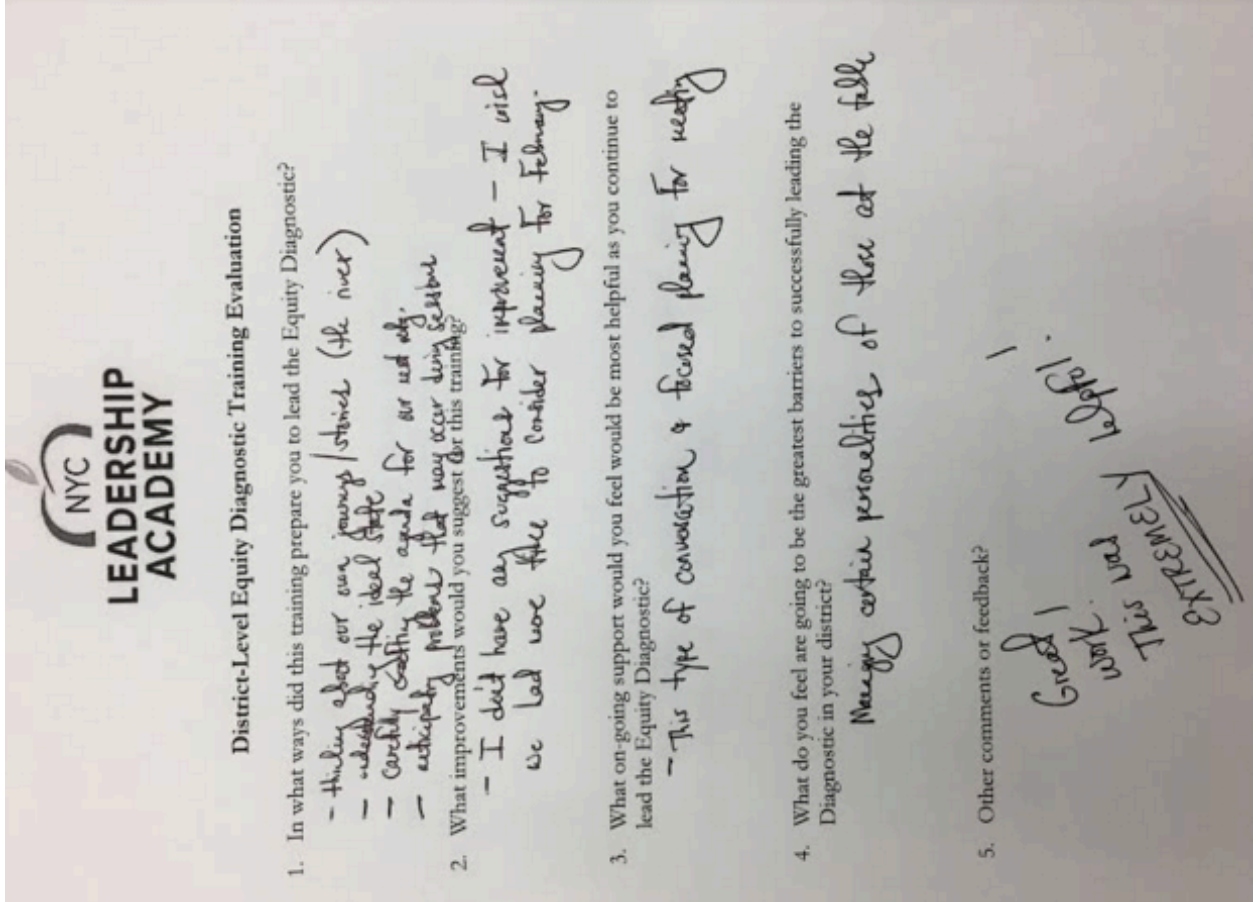 NYC
LEADERSHIP
ACADEMY
District-Level Equity Diagnostic Training Evaluation
1. In what ways did this training prepare you to lead the Equity Diagnostic?
- thinking about our own journeys/stories (the river)
- understanding the ideal state
- carefully crafting the agenda for our next mtg.
- anticipating problems that may occur during sessions
2. What improvements would you suggest for this training?
- I don't have any suggestions for improvement - I wish
we had more time to consider planning for February.
3. What on-going support would you feel would be most helpful as you continue to
lead the Equity Diagnostic?
- This type of conversation & focused planning for meeting
4. What do you feel are going to be the greatest barriers to successfully leading the
Diagnostic in your district?
Managing certain personalities of those at the table
5. Other comments or feedback?
Great
work!
This was
EXTREMELY helpful!